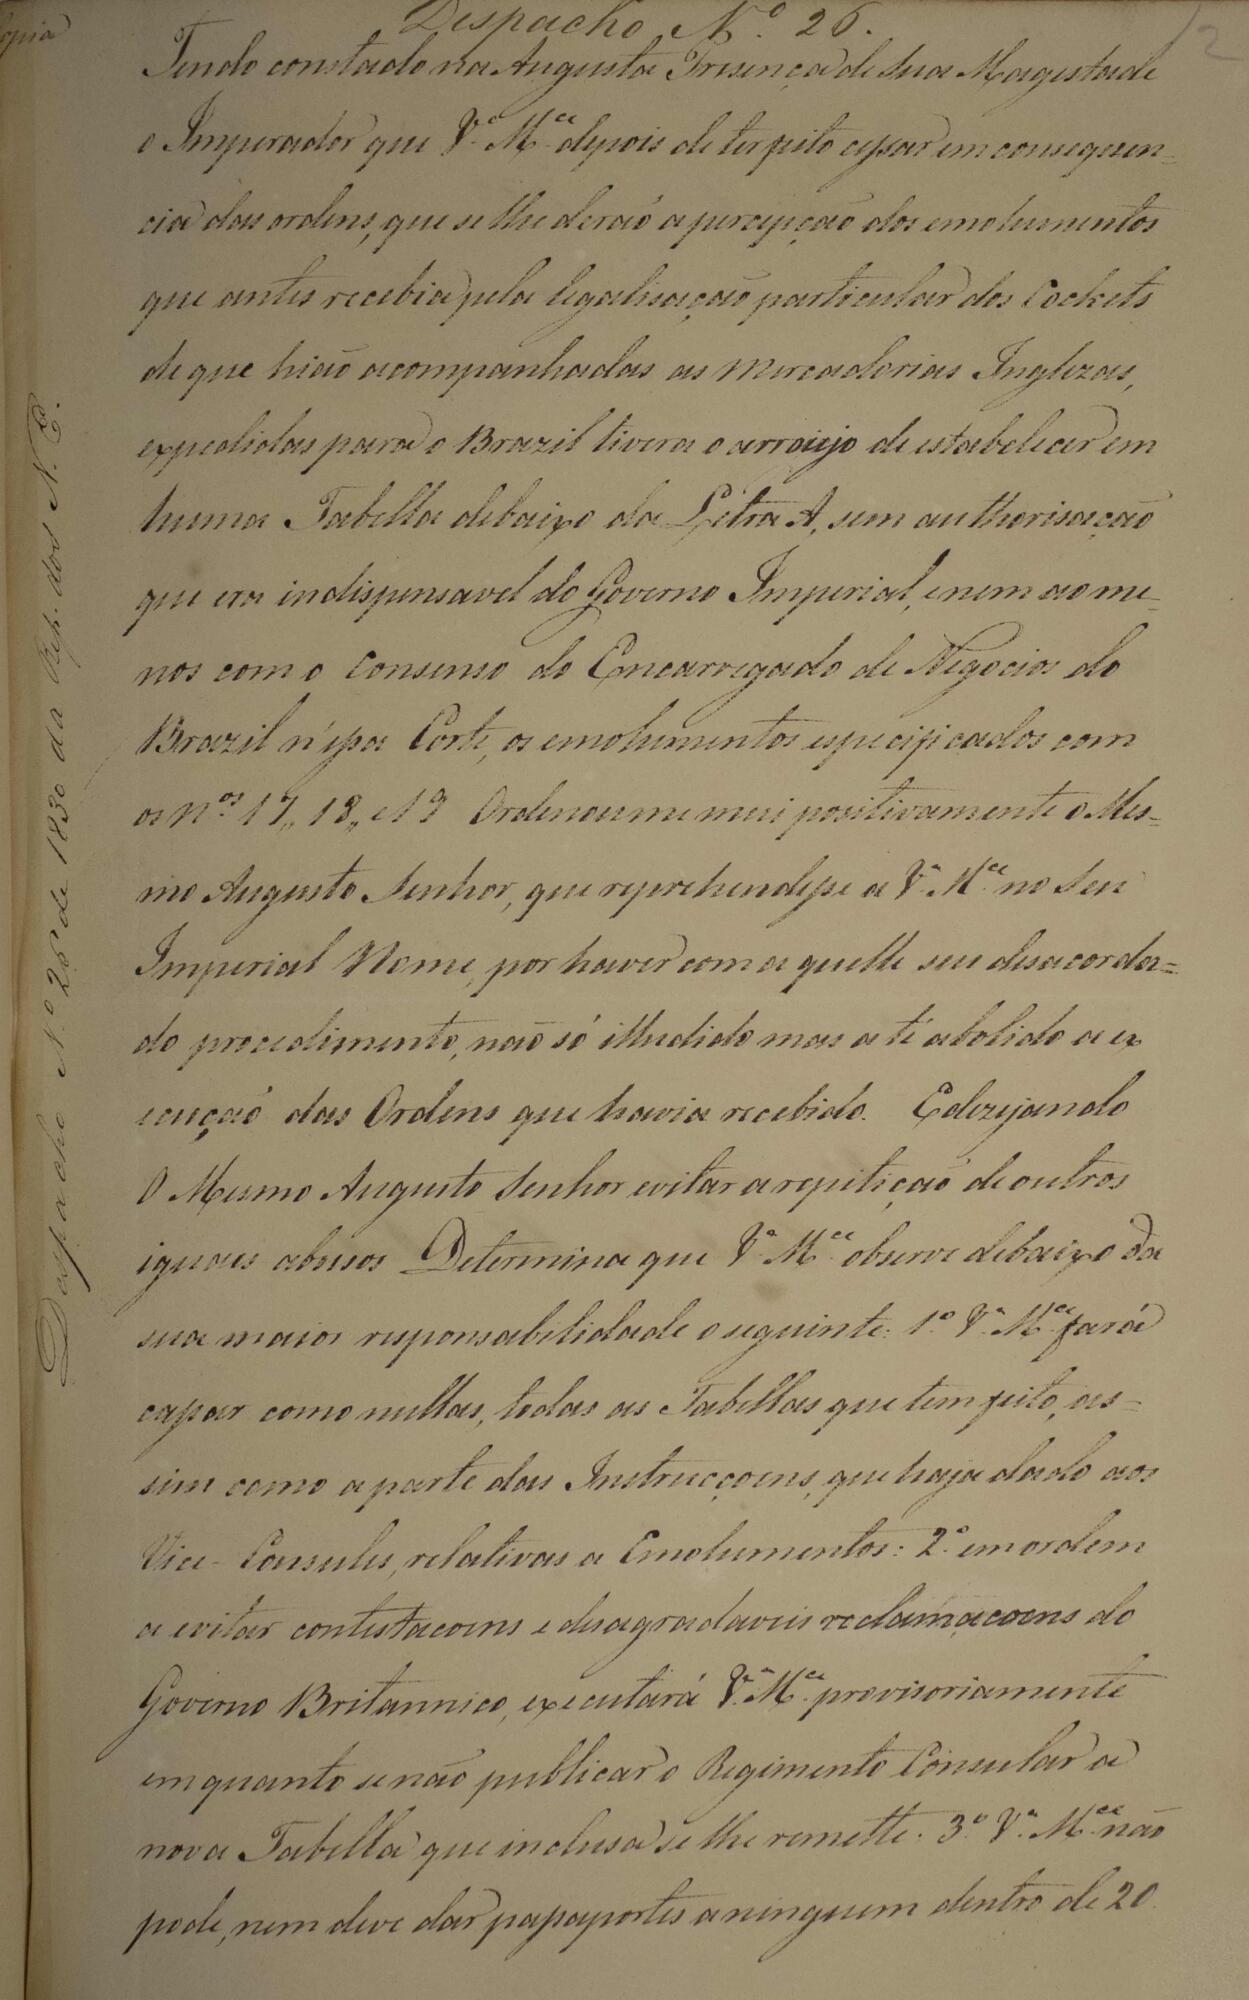 Copia
12
Despacho N.º 26.
Tendo constado na Augusta Presença de Sua Magestade
o Imperador que V.ª M.ce depois de ter feito cessar em consequen-
cia das ordens, que se lhe derão a percepção dos emolumentos
que antes recebia pela legalisação particular dos Cockets
de que hião acompanhadas as Mercadorias Inglezas,
expedidas para o Brazil tivera o arrojo de estabelecer em
huma Tabella debaixo da Letra A, sem authorisação
que era indispensavel do Governo Imperial, e nem ao me-
nos com o Consenso do Encarregado de Negocios do
Brazil n'essa Corte, os emolumentos especificados com
os N.os 17,, 18,, e 19 Ordenou me mui positivamente o Mes-
mo Augusto Senhor, que reprehendesse a V.ª M.ce no Seu
Imperial Nome, por haver com aquelle seu desacorda=
do procedimento, não só illudido mas a té abolido a ex
ecução das Ordens que havia recebido. E dezejando
O Mesmo Augusto Senhor evitar a repitição de outros
iguaes abusos Determina que V.ª M.ce observe debaixo da
sua maior responsabilidade o seguinte: 1.º V.ª M.ce fará
cassar como nullas, todas as Tabellas que tem feito, as-
sim como a parte das Instrucçoens, que haja dado aos
Vice-Consules, relativas a Emolumentos: 2.º em ordem
a evitar contestacoens e desagradaveis reclamacoens do
Governo Britannico, executará V.ª M.ce provisoriamente
emquanto se não publicar o Regimento Consular a
nova Tabella que inclusa se lhe remette: 3.º V.ª M.ce não
pode, nem deve dar passaportes a ninguem dentro de 20
Despacho N.º 26 de 1830 da Rep. dos N. E.